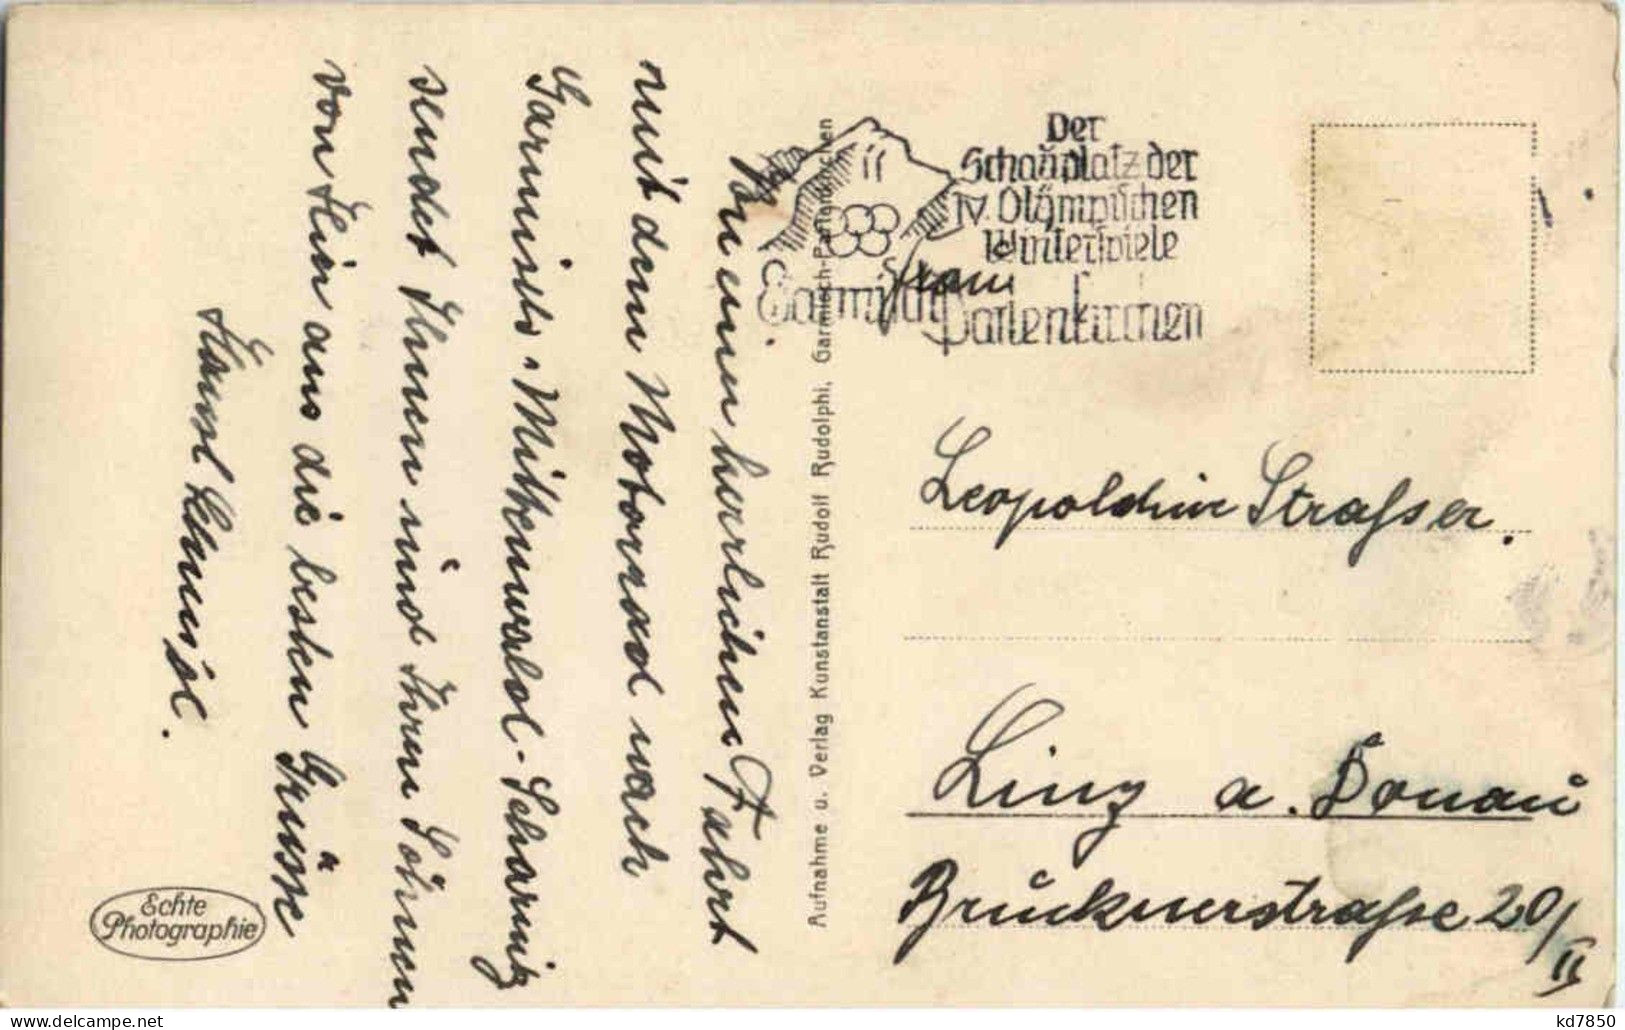 Bei einer herrlichen Fahrt
mit dem Motorrad nach
Garmisch-Mittenwald-Scharnitz
sendet Ihnen und Ihren Söhnen
von Hier aus die besten Grüsse
Aufnahme u. Verlag Kunstanstalt Rudolf Rudolphi, Garmisch-Partenkirchen
Der
Schauplatz der
IV. Olympischen
Winterspiele
Garmisch
Partenkirchen
Frau
Leopoldine Strasser.
Linz a. Donau
Brucknerstrasse 20/II
Echte
Photographie
kd7850